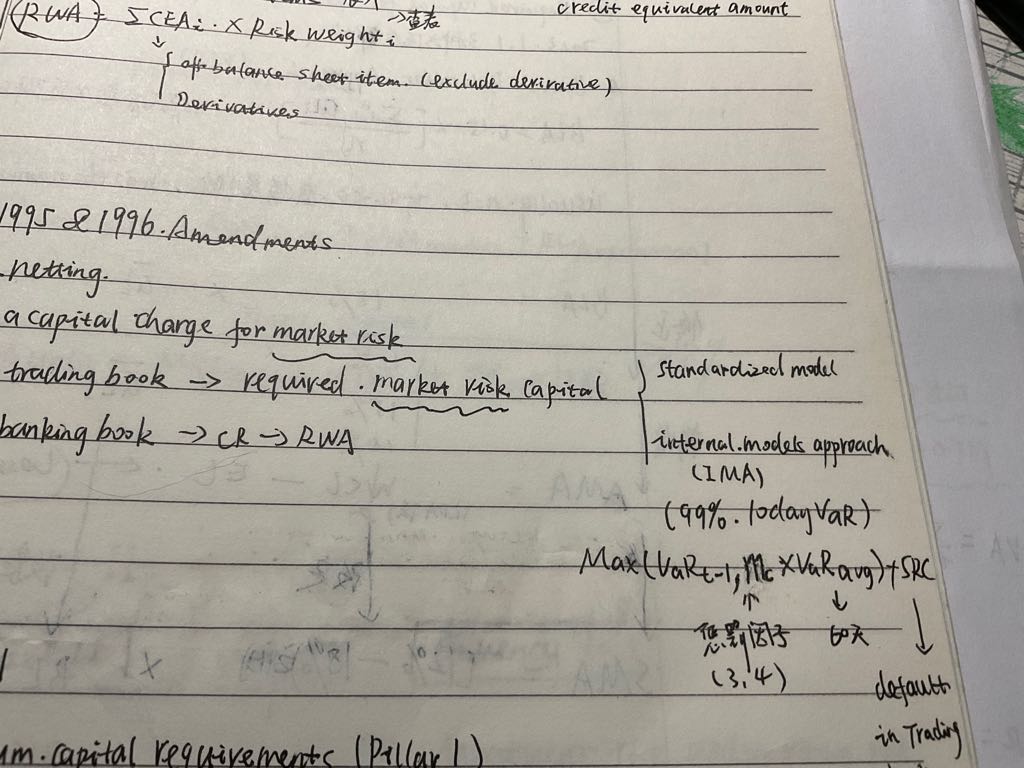 credit equivalent amount
RWA = ΣCEAi × Risk weighti → 查表
off-balance sheet item. (exclude derivative)
Derivatives
1995 & 1996. Amendments
netting.
a capital charge for market risk
trading book → required. market risk capital
standardized model
banking book → CR → RWA
internal.models approach
(IMA)
(99%. 10day VaR)
Max(VaRt-1, mc × VaRavg) + SRC
惩罚因子
60天
(3,4)
default
in Trading
um. capital requirements (Pillar 1)